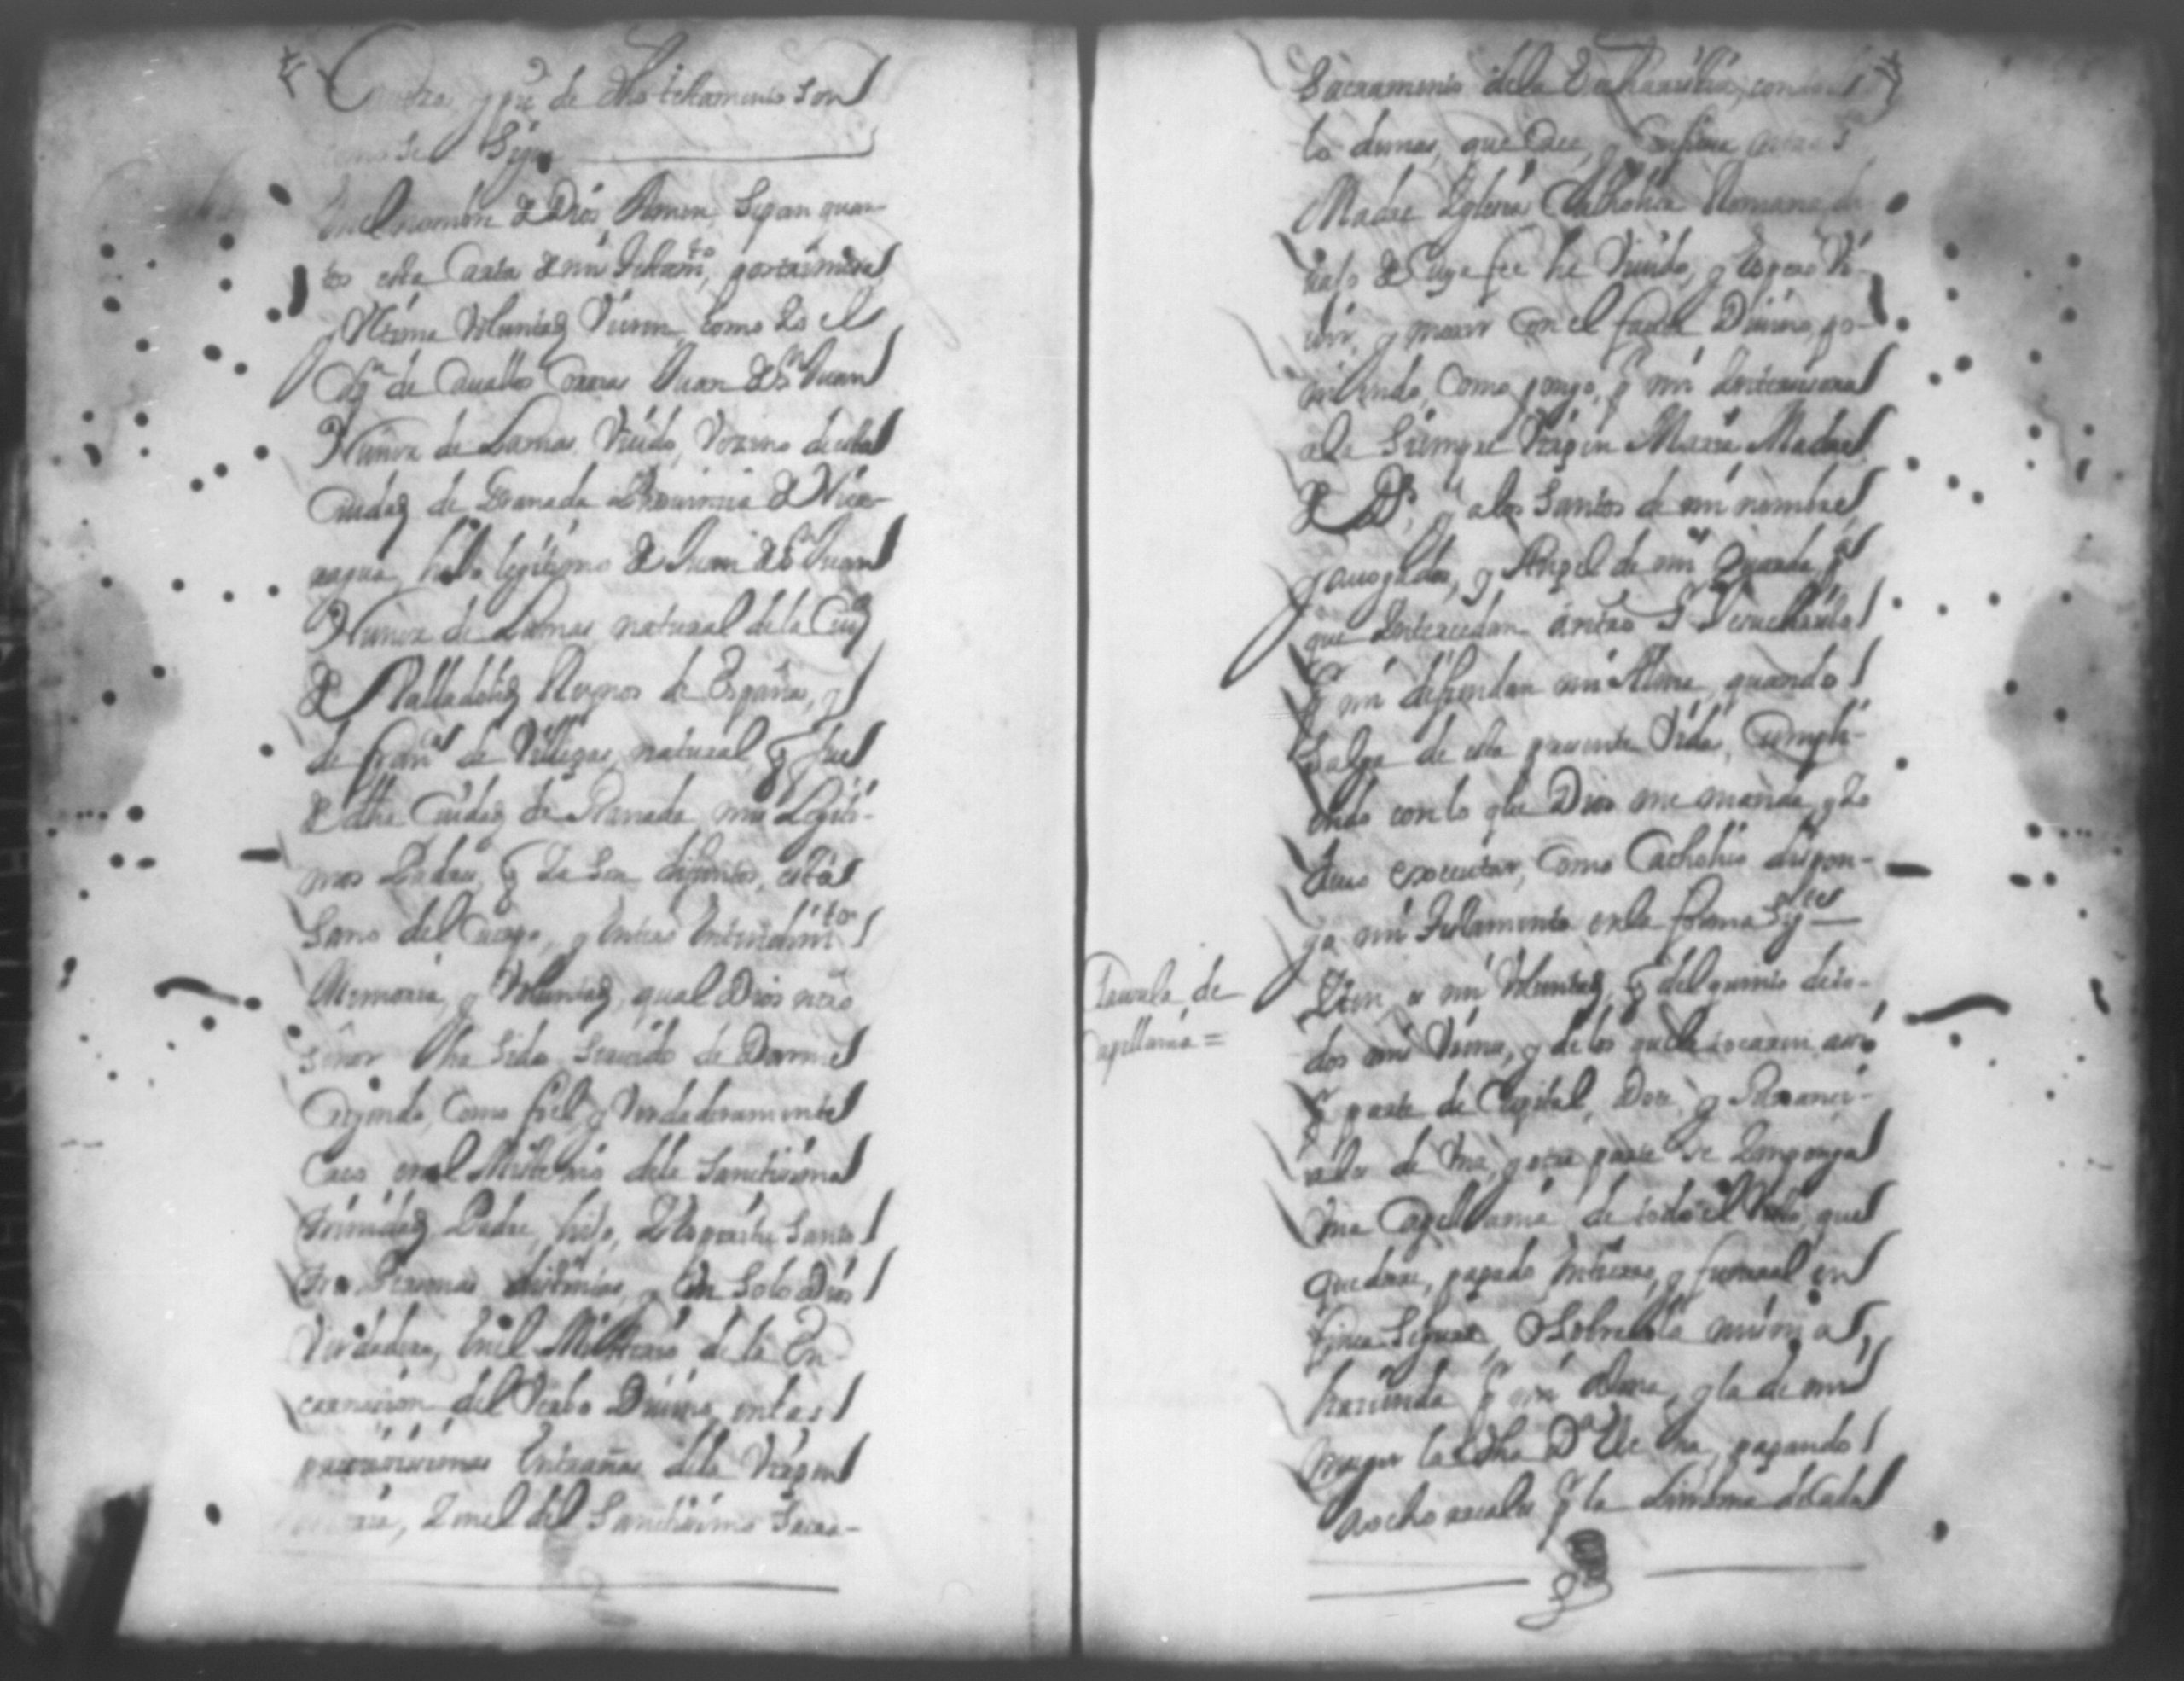 y pie de dho testamento son
como se Sigue
En el nombre de Dios Amen, Sepan quan-
tos esta Carta de mi testamto, postrimera
y Ultima Voluntad Vieren, como Yo el
Capn de Cauallos Corazas Juan de Sn Juan
Nuñez de Lamas Viudo, Vezino de esta
Ciudad de Granada Prouincia de Nica-
ragua, hijo legitimo de Juan de Sn Juan
Nuñez de Lamas natural de la Ciud
de Valladolid Reynos de España, y
de Franca de Villegas natural q fue
de dha Ciudad de Granada mis Legiti-
mos Padres, q Ya son difuntos, estando
Sano del Cuerpo, y Entero Entendimto
Memoria, y Voluntad, qual Dios nro
Señor ha sido seruido de Darme
Creyendo, Como fiel y Verdaderamente
Creo en el Misterio dela Sanctissima
Trinidad Padre, hijo, Y Espiritu Santo
tres Personas distintas, y Un Solo Dios
Verdadero, En el Misterio de la En-
carnacion del Verbo Diuino en las
purissimas Entrañas dela Virgen
Maria, Y en el del Sanctissimo Sacra-
Sacramento dela Eucharistia, con todo
lo demas, que Cree, y Confiesa nra Sta
Madre Yglesia Catholica Romana, de
vajo de Cuya fee he Viuido, y Espero Vi-
uir, y morir con el fauor Diuino, po-
niendo, Como pongo, p mi Intercesora
ala Siempre Virgen Maria Madre
de Ds, y alos Santos de mi nombre
y auogados, y Angel de mi Guarda pa
que Intercedan
p mi defiendan mi Alma, quando
salga de esta presente Vida, Cumpli-
endo con lo que Dios me manda, y Yo
deuo executar, Como Catholico dispon-
go mi testamento en la forma Sigte
Clausula de
capellania =
Yten es mi Voluntad, q del quinto de to-
dos mis Vienes, y de los que le tocaren
p parte de Capital, Dote, y Ganancia-
les de Una, y otra parte se Ymponga
Una Capellania de todo el resto que
quedare, pagado Entierro, y funeral en
finca Segura, O Sobre la misma
hacienda p mi Alma, y la de mi
muger la dha Da pagando
a ocho reales p la Limosna de Cada